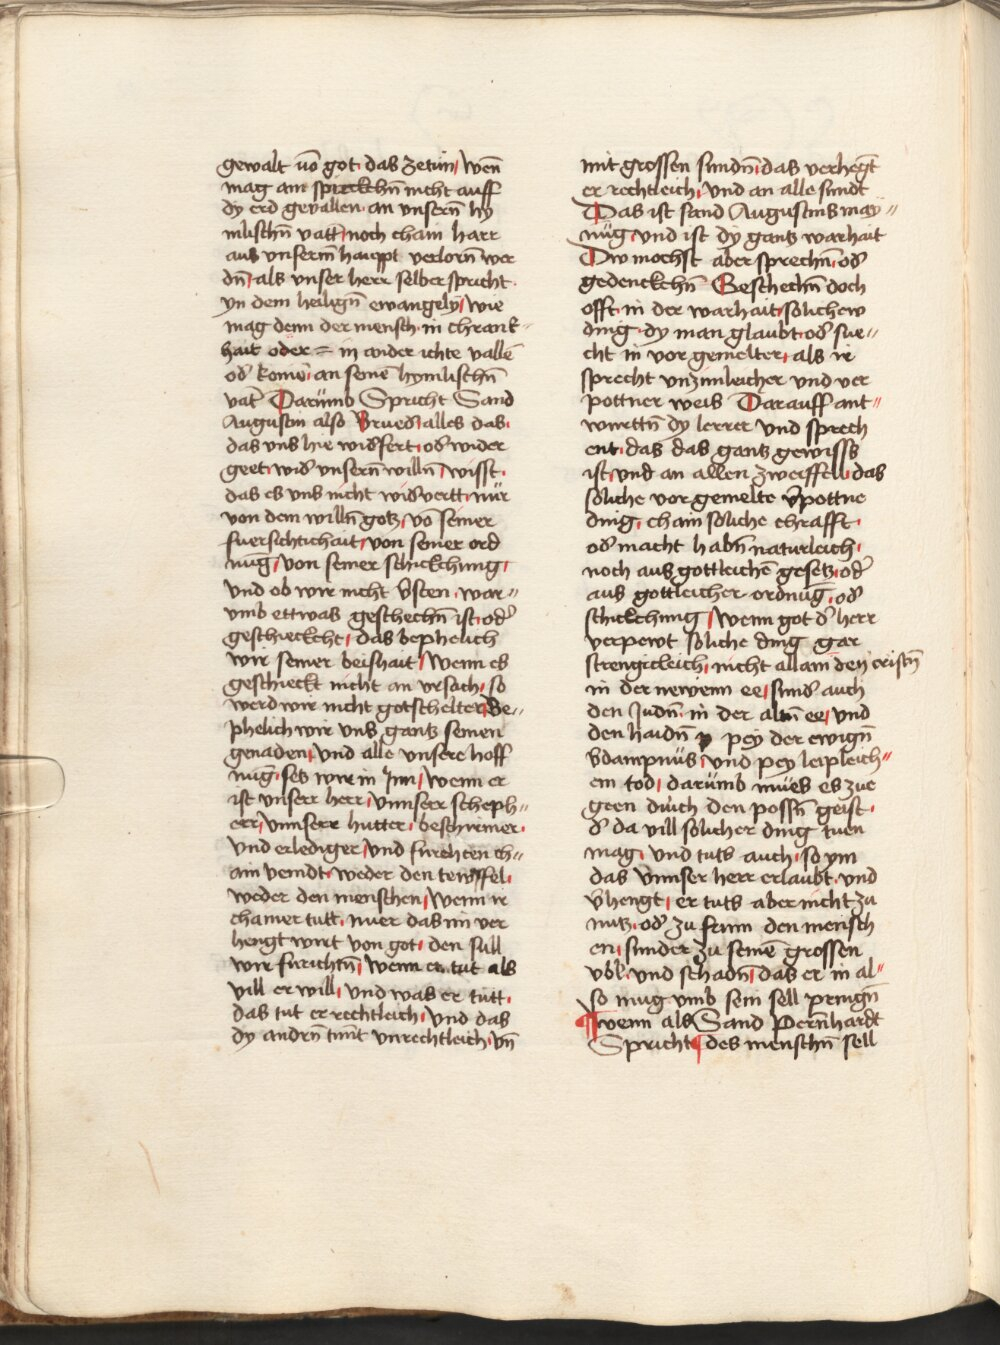 gewalt vō got· das zetūn / Wen̄
mag ain spirckchn̄ nicht auff
dy erd gevallen· an vnsern̄ hy
mlischn̄ vatt̄ / noch chain harr
aus vnserm̄ hauppt verlorn̄ wer
dn̄ / als vnser herr selber spricht·
yn dem heilign̄ ewangely / Wie
mag denn der mensch· in chranck-
hait oder = in ander ichte vallē
od̄ komē / an seinē hymlischn̄
vat̄ Darumb Spricht Sand
Augustin also Brued̄ / alles das·
das vns hie wid̄fert· od̄ wider
geet· wid̄ vnsern̄ willn̄ / wisst·
das es vns nicht wid̄vertt· nür
von dem willn̄ gotz / vō seiner
fuersichtichait / von seiner ord
nūg / von seiner schickchung /
Vnd ob wir nicht v̄sten· war-
vmb ettwas geschechn̄ ist· od̄
geschieckcht / das bephelich
wir seiner beishait / Wenn es
geschieckt nicht an vrsach / so
werd wir nicht gotschelter / Be-
phelich wir vns gantz seinen
genaden / vnd alle vnsere hoff
nūg· setz wir in Inn / Wenn er
ist vnserr herr / Vnnserr scheph-
err / Vnnserr hutter· beschirmer·
Vnd erlediger / Vnd furchten ch-
ain veindt· weder den tewffel·
weder den menschen / Wenn ir
chainer tutt· nuer das im ver
hengt wirt von got / den sull
wir furichtn̄ / Wenn er tut als
vill er will / Vnd was er tutt·
das tut er rechtleich / Vnd das
dy andrn̄ tunt vnrechtleich / Vn̄
mit grossen sundn̄ / das verhegt̄
er rechtleich / Vnd an alle sundt
Das ist sand Augustins may-
nūg / Vnd ist dy gantz warhait
Dw mochst aber sprechn̄ / od̄
gedenckchn̄ Geschechn̄ doch
offt· in der warhait / solichew
ding· dy man glaubt· od̄ sue-
cht in vor gemelter / als ir
sprecht vnzimleicher vnd ver
pottner weis Darauff ant-
wurttn̄ dy lerrer vnd sprech
ent· das das gantz gewisss
ist / vnd an allen zweiffell· das
soliche vor gemelte v̄pottne
ding / cham soliche chrafft·
od̄ macht habn̄ naturleich /
noch aus gottleichē gesetz / od̄
aus gottleicher ordnūg / od̄
schickchung / Wenn got d̄ herr
verpewt soliche ding gar
strengicleich / nicht allain den cristn̄
in der newenn ee / sund̄ auch
den Judn̄· in der altn̄ ee / vnd
den haidn̄ pey der ewign̄
v̄dampnüs / Vnd pey leipleich-
em tod / darümb mües es zue
geen durch den possn̄ geist·
d̄ da vill solicher ding tuen
mag / Vnd tuts auch / so ym
das Vnnser herr erlaubt· vnd
v̄hengt / er tuts aber nicht zu
nutz / od̄ zu frum den mensch
en / sunder zu seinē grossen
vbl· vnd schadn̄ / das er in al-
so mug vmb sein sell pringn̄
¶ wenn als Sand Pern̄hardt
Spricht ¶ des menschn̄ sell